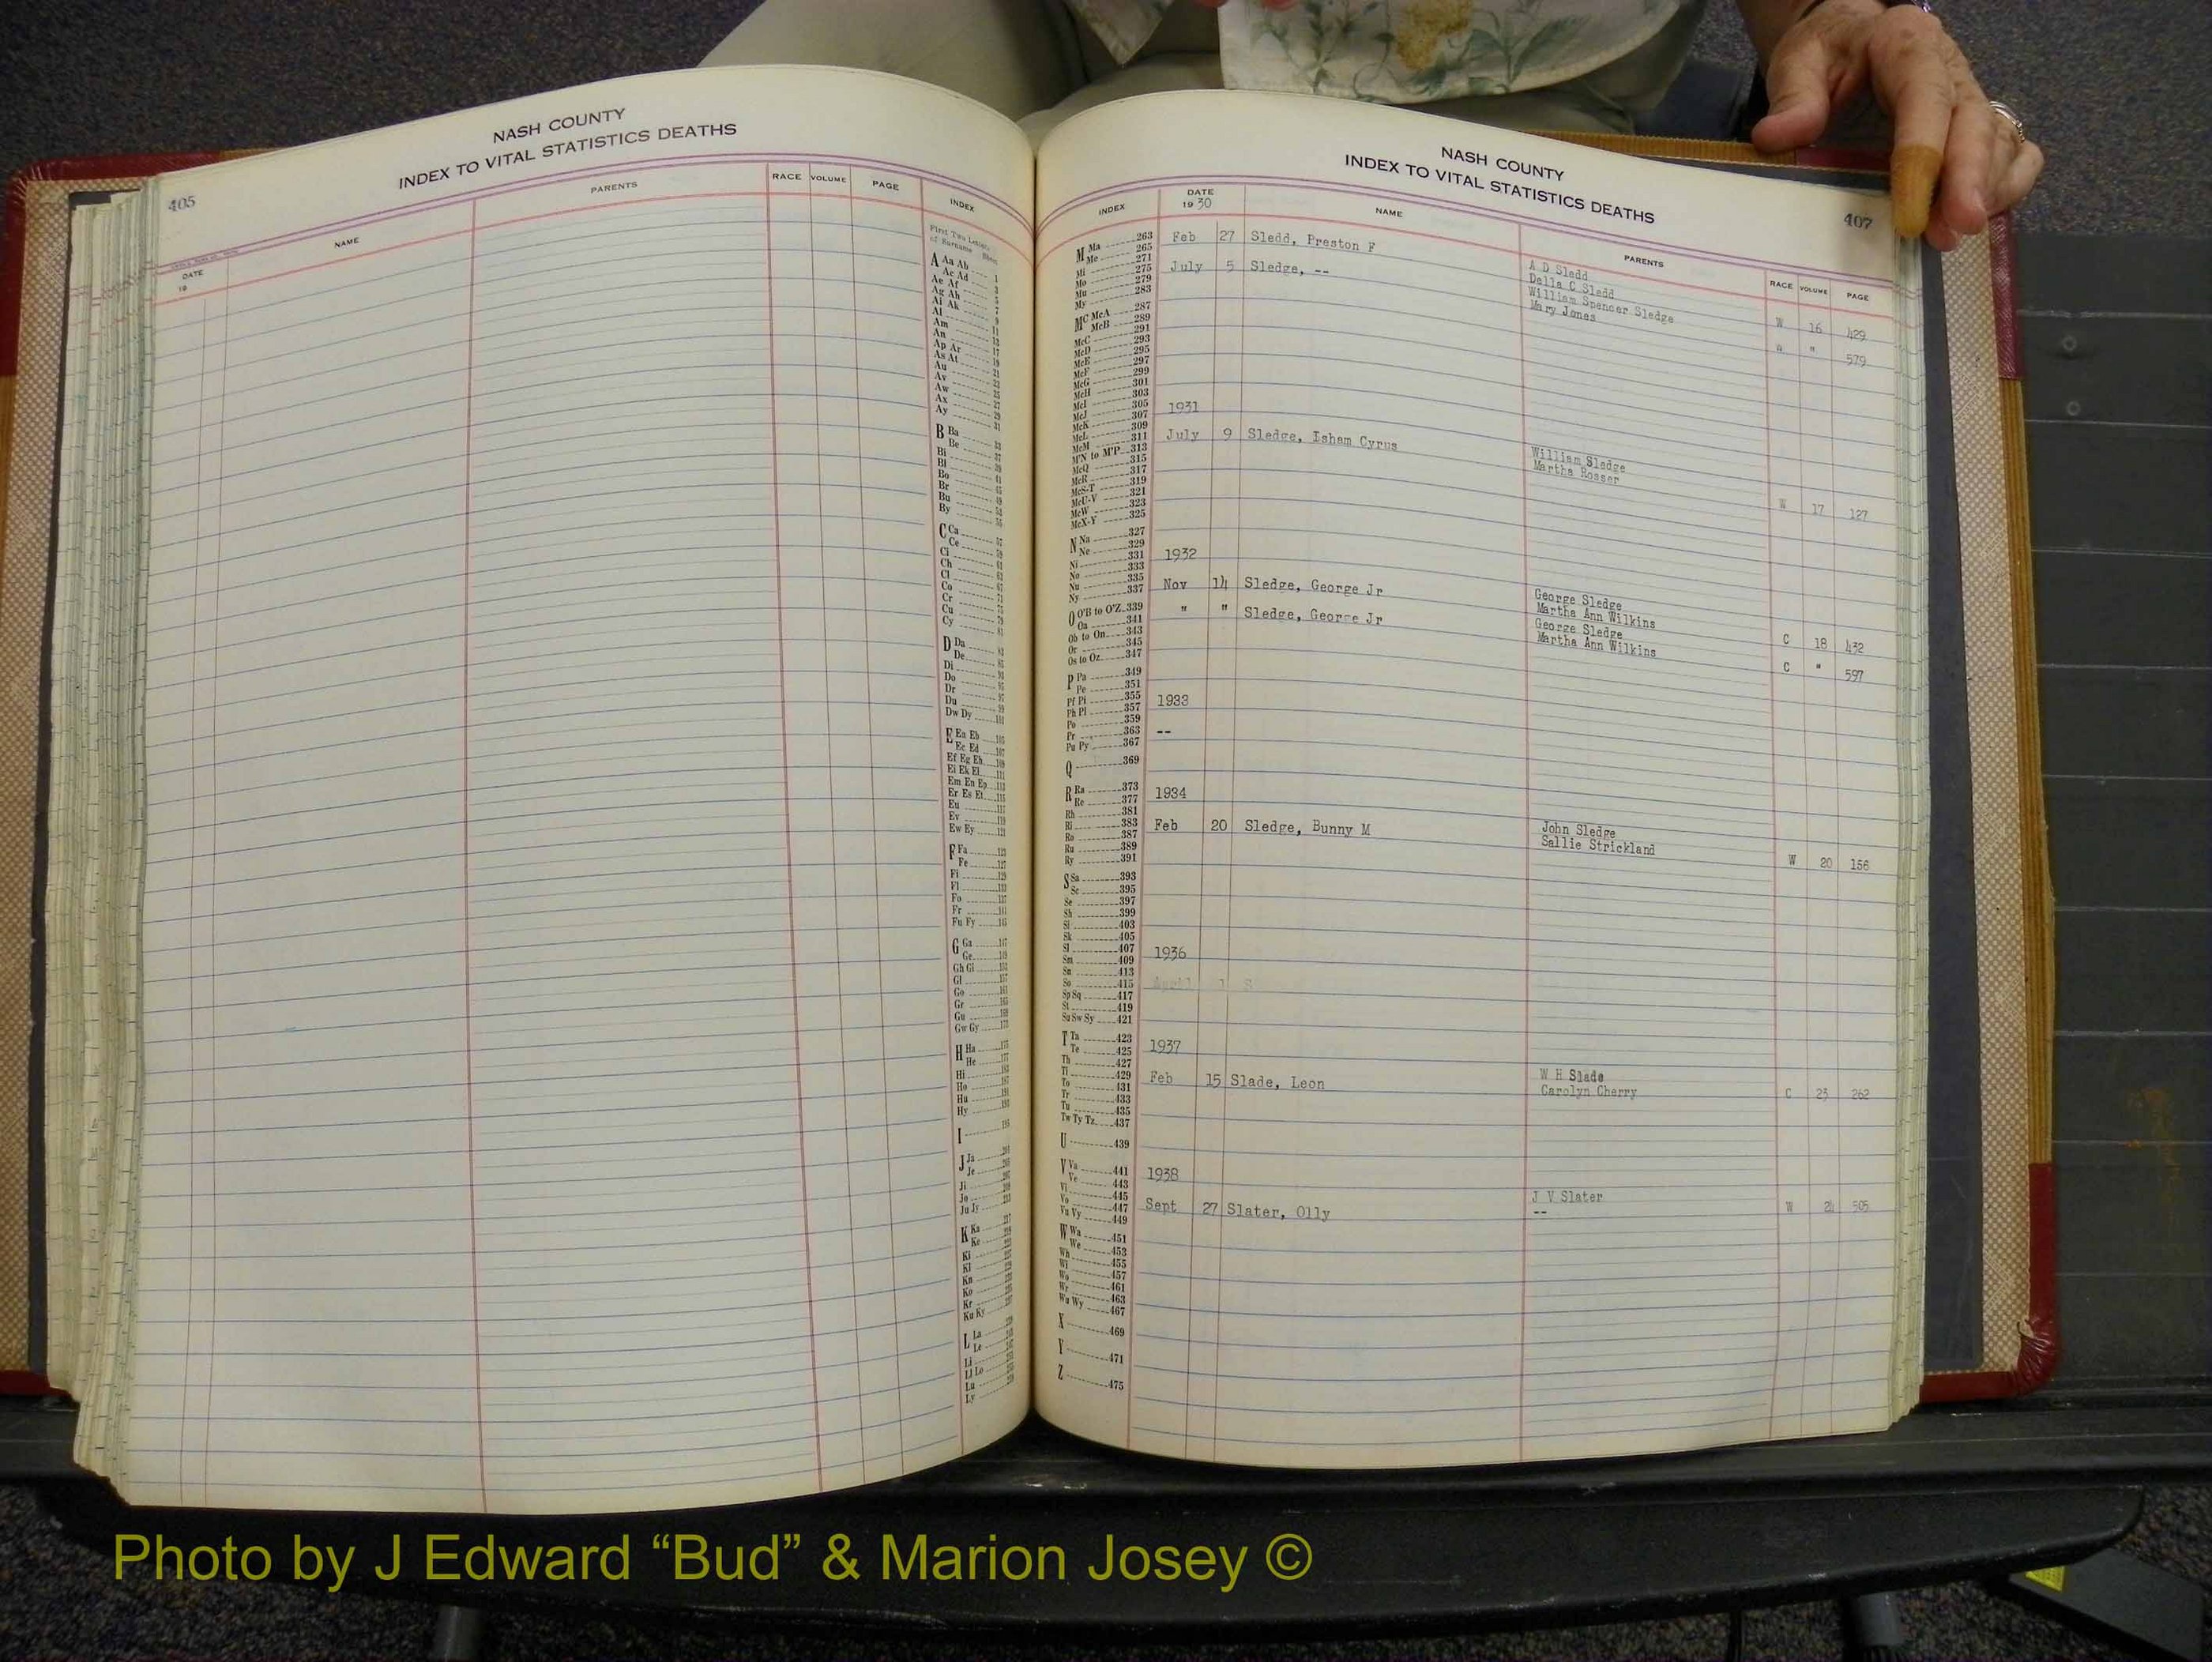 NASH COUNTY
INDEX TO VITAL STATISTICS DEATHS
405
DATE
19
NAME
PARENTS
RACE
VOLUME
PAGE
INDEX
First Two Letters
of Surname
A Aa Ab
Ac Ad
Ae Af
Ag Ah
Ai Ak
Al
Am
An
Ap Ar
As At
Au
Av
Aw
Ax
Ay
B Ba
Be
Bi
Bl
Bo
Br
Bu
By
C Ca
Ce
Ci
Ch
Cl
Co
Cr
Cu
Cy
D Da
De
Di
Do
Dr
Du
Dw Dy
E Ea Eb
Ec Ed
Ef Eg Eh
Ei Ek El
Em En Ep
Er Es Et
Eu
Ev
Ew Ey
F Fa
Fe
Fi
Fl
Fo
Fr
Fu Fy
G Ga
Ge
Gh Gi
Gl
Go
Gr
Gu
Gw Gy
H Ha
He
Hi
Ho
Hu
Hy
I
J Ja
Je
Ji
Jo
Ju Jy
K Ka
Ke
Ki
Kl
Kn
Ko
Kr
Ku Ky
L La
Le
Li
Ll Lo
Lu
Ly
NASH COUNTY
INDEX TO VITAL STATISTICS DEATHS
407
INDEX
DATE
19 30
NAME
PARENTS
RACE
VOLUME
PAGE
M Ma 263
Me 265
271
Mi 275
Mo 279
Mu 283
My
287
MC McA 289
McB 291
McC 293
McD 295
McE 297
McF 299
McG 301
McH 303
McI 305
McJ 307
McK 309
McL 311
McM 313
M'N to M'P 315
McQ 317
McR 319
McS-T 321
McU-V 323
McW 325
McX-Y
N Na 327
Ne 329
Ni 331
No 333
Nu 335
Ny 337
O O'B to O'Z 339
Oa 341
Ob to On 343
Or 345
Os to Oz 347
P Pa 349
Pe 351
Pf Pi 355
Ph Pl 357
Po 359
Pr 363
Pu Py 367
Q 369
R Ra 373
Re 377
Rh 381
Ri 383
Ro 387
Ru 389
Ry 391
S Sa 393
Sc 395
Se 397
Sh 399
Si 403
Sk 405
Sl 407
Sm 409
Sn 413
So 415
Sp Sq 417
St 419
Su Sw Sy 421
T Ta 423
Te 425
Th 427
Ti 429
To 431
Tr 433
Tu 435
Tw Ty Tz 437
U 439
V Va 441
Ve 443
Vi 445
Vo 447
Vu Vy 449
W Wa 451
We 453
Wh 455
Wi 457
Wo 461
Wr 463
Wu Wy 467
X 469
Y 471
Z 475
Feb 27 Sledd, Preston F
A D Sledd
Della C Sledd
W 16 429
July 5 Sledge, --
William Spencer Sledge
Mary Jones
" " 579
1931
July 9 Sledge, Isham Cyrus
William Sledge
Martha Rosser
W 17 127
1932
Nov 14 Sledge, George Jr
George Sledge
Martha Ann Wilkins
C 18 432
" " Sledge, George Jr
George Sledge
Martha Ann Wilkins
C " 597
1933
--
1934
Feb 20 Sledge, Bunny M
John Sledge
Sallie Strickland
W 20 156
1936
April 1 S
1937
Feb 15 Slade, Leon
W H Slade
Carolyn Cherry
C 23 262
1938
Sept 27 Slater, Olly
J V Slater
--
W 24 505
Photo by J Edward “Bud” & Marion Josey ©